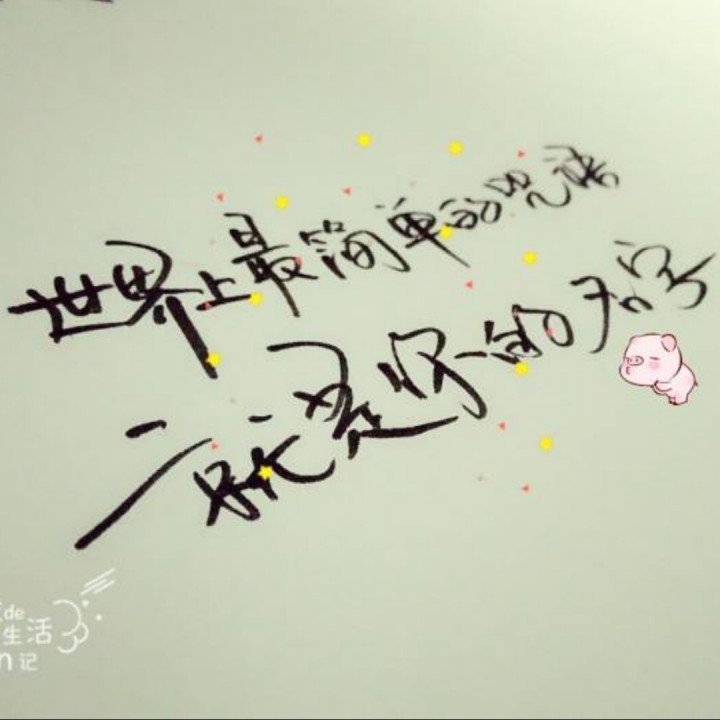 世界上最简单的咒语
就是你的名字
de
生活
n记